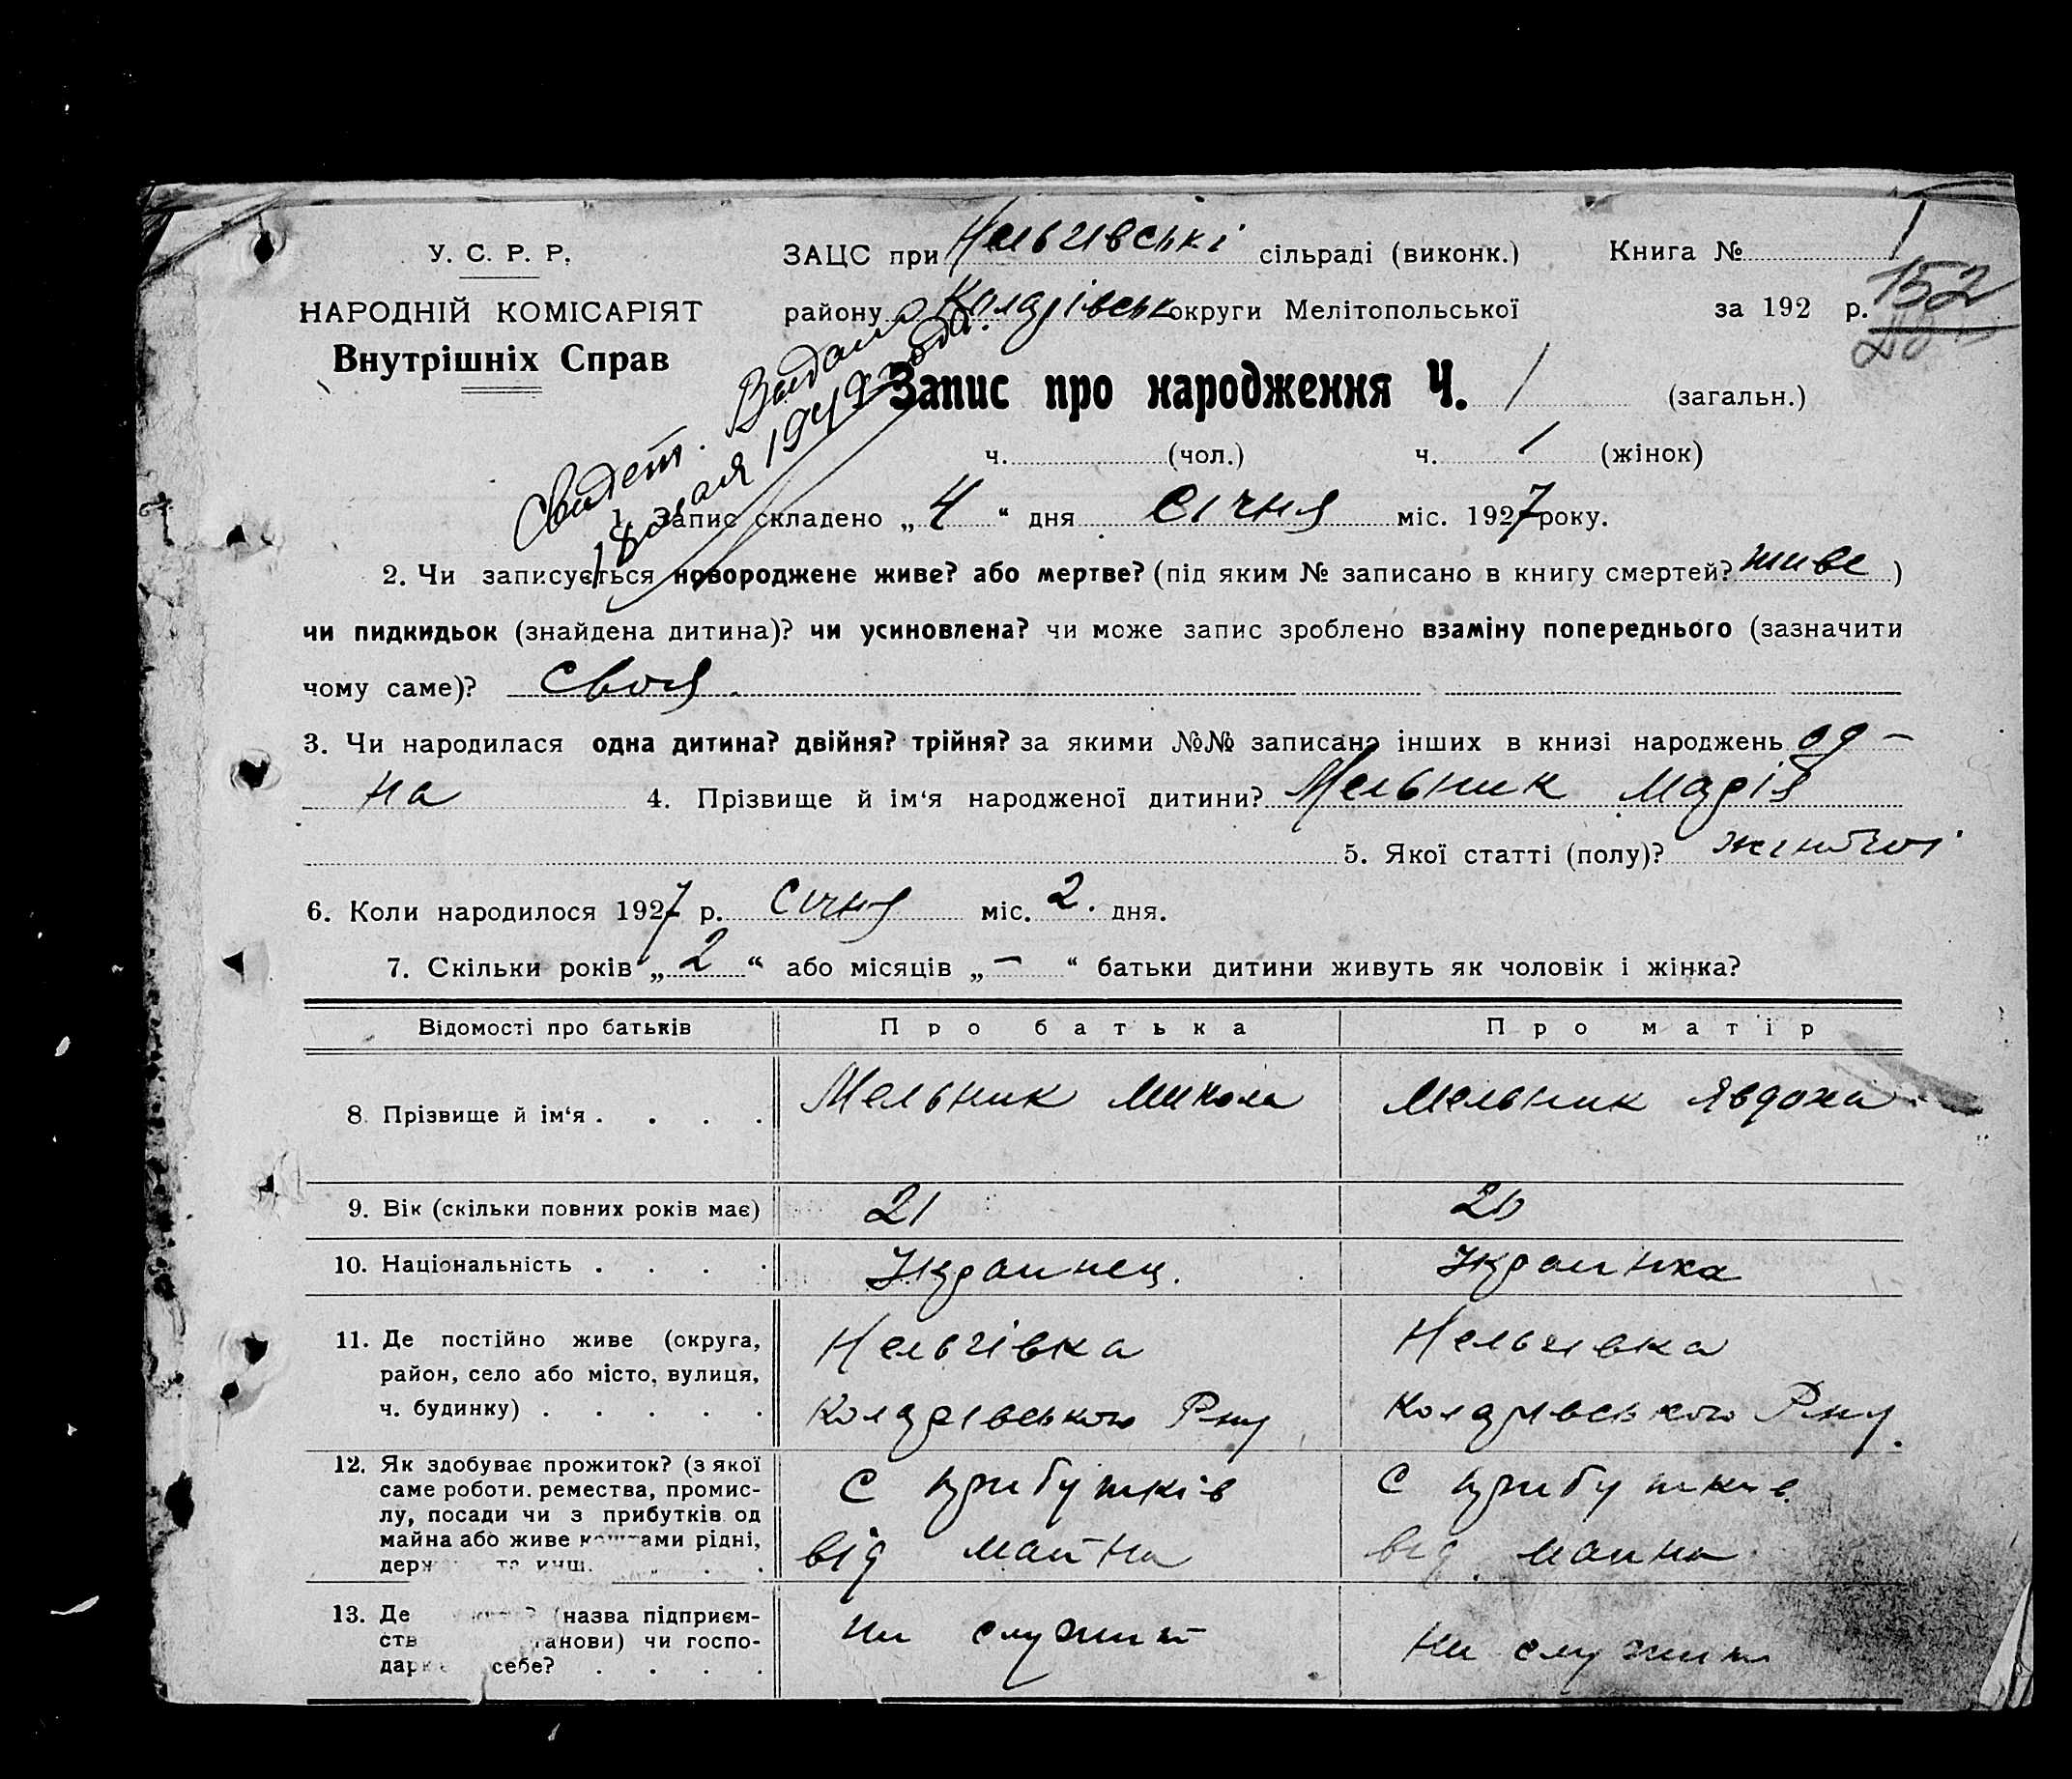 У. С. Р. Р.
НАРОДНІЙ КОМІСАРІЯТ
Внутрішніх Справ
ЗАЦС при Нельгівські сільраді (виконк.)
району Коларівськ округи Мелітопольської
Книга № 1
за 192 р. 152
Свидет. Выдано
18 мая 1949 года.
Запис про народження Ч. 1 (загальн.)
ч. (чол.) ч. 1 (жінок)
1. Запис складено „4“ дня Січня міс. 1927 року.
2. Чи записується новороджене живе? або мертве? (під яким № записано в книгу смертей? живе )
чи пидкидьок (знайдена дитина)? чи усиновлена? чи може запис зроблено взаміну попереднього (зазначити
чому саме)? своя.
3. Чи народилася одна дитина? двійня? трійня? за якими №№ записано інших в книзі народжень од-
на 4. Прізвище й ім‘я народженої дитини? Мельник Марія
5. Якої статті (полу)? жіночої
6. Коли народилося 1927 р. Січня міс. 2. дня.
7. Скільки років „2“ або місяців „-“ батьки дитини живуть як чоловік і жінка?
Відомості про батьків Про батька Про матір
8. Прізвище й ім‘я . . . . Мельник Микола Мельник Явдоха
9. Вік (скільки повних років має) 21 20
10. Національність . . . . Украинец. Украинка
11. Де постійно живе (округа, Нельгівка Нельгівка
район, село або місто, вулиця,
ч. будинку) . . . . . Коларівського Рну Коларівського Рну.
12. Як здобуває прожиток? (з якої
саме роботи. ремества, промис- С прибутків С прибутків
лу, посади чи з прибутків од
майна або живе коштами рідні, від майна від майна
держ та инш. . . .
13. Де (назва підприєм- ни служит ни служит
ств анови) чи госпо-
дар себе? . . . .